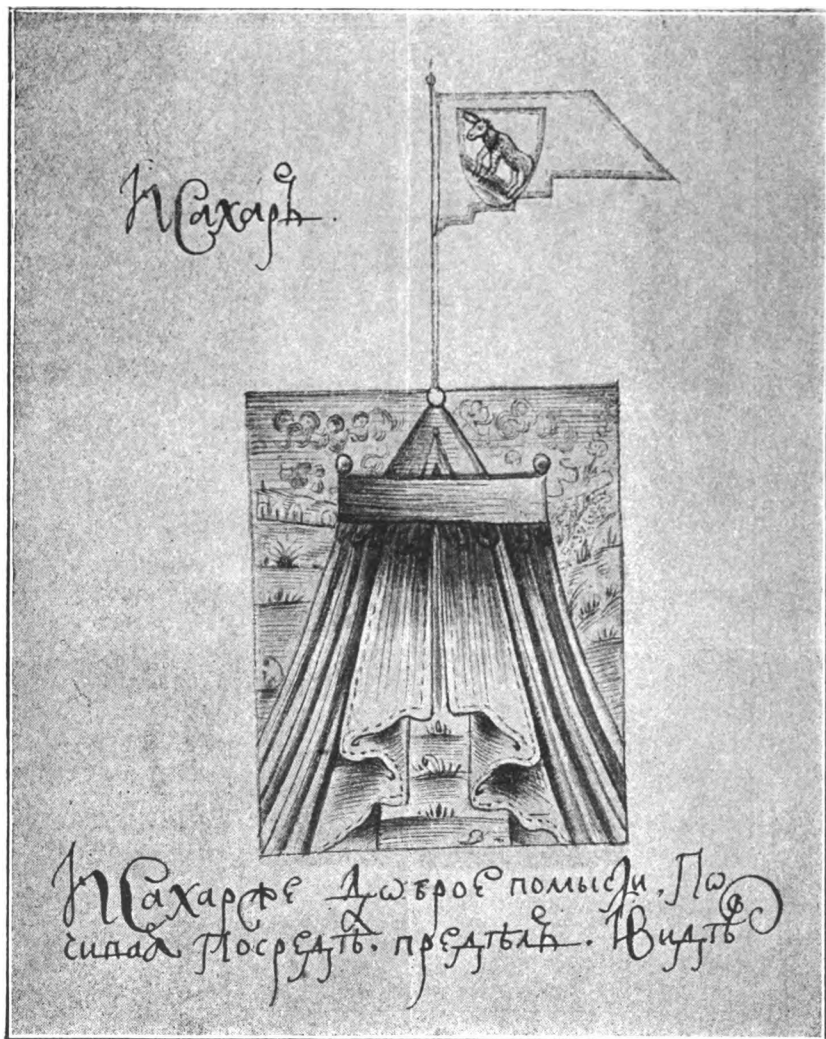 Исахаръ.
Исахар же доброе помысли. По
чипаѧ Посредѣ. предѣлъ. И видѣ